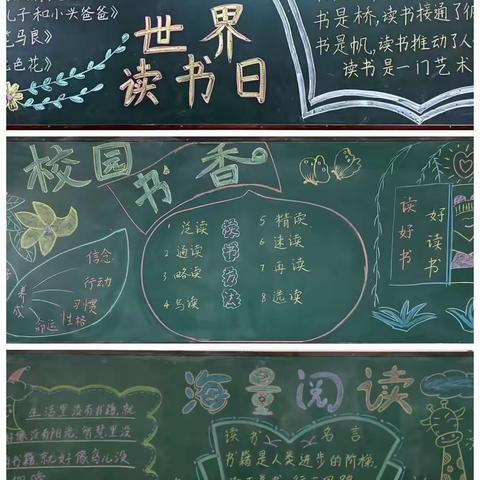 儿子和小头爸爸》
笔马良》
色花》
世界
读书日
书是桥,读书接通了
书是帆,读书推动了人
读书是一门艺术
校园
书香
信念
行动
习惯
性格
命运
养成
泛读
2 通读
3 略读
4 写读
读书方法
5 精读
6 速读
7 再读
8 选读
读好书
好读书
海量阅读
生活里没有书籍,就
好像没有阳光,智慧里没
有书籍,就好像鸟儿没
读书 名言
书籍是人类进步的阶梯.